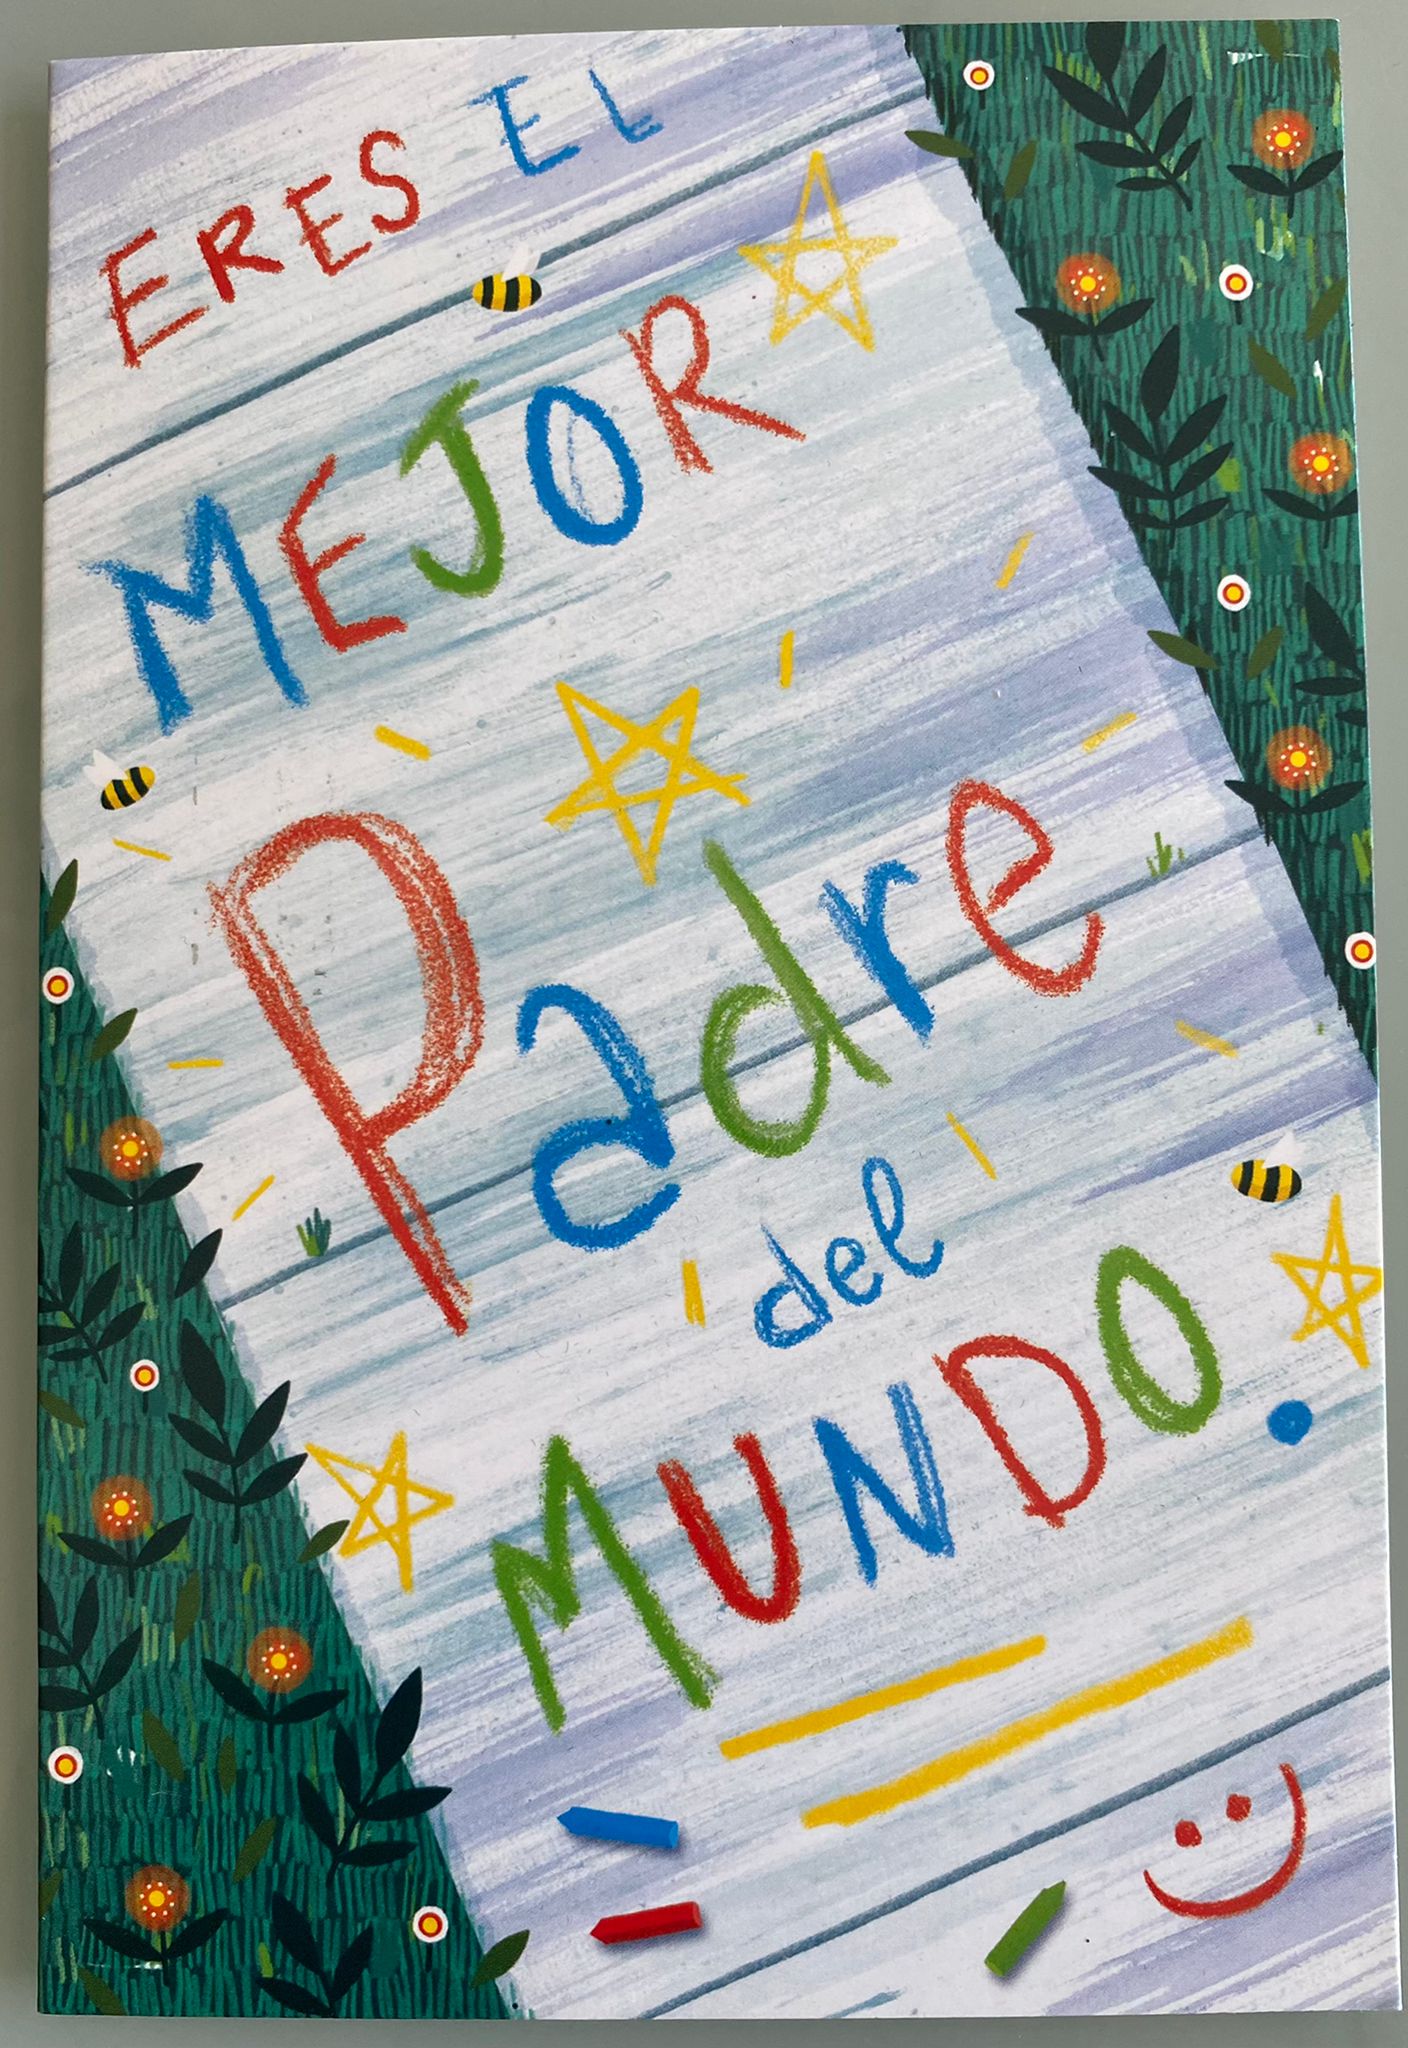 ERES EL
MEJOR
Padre
del
MUNDO.